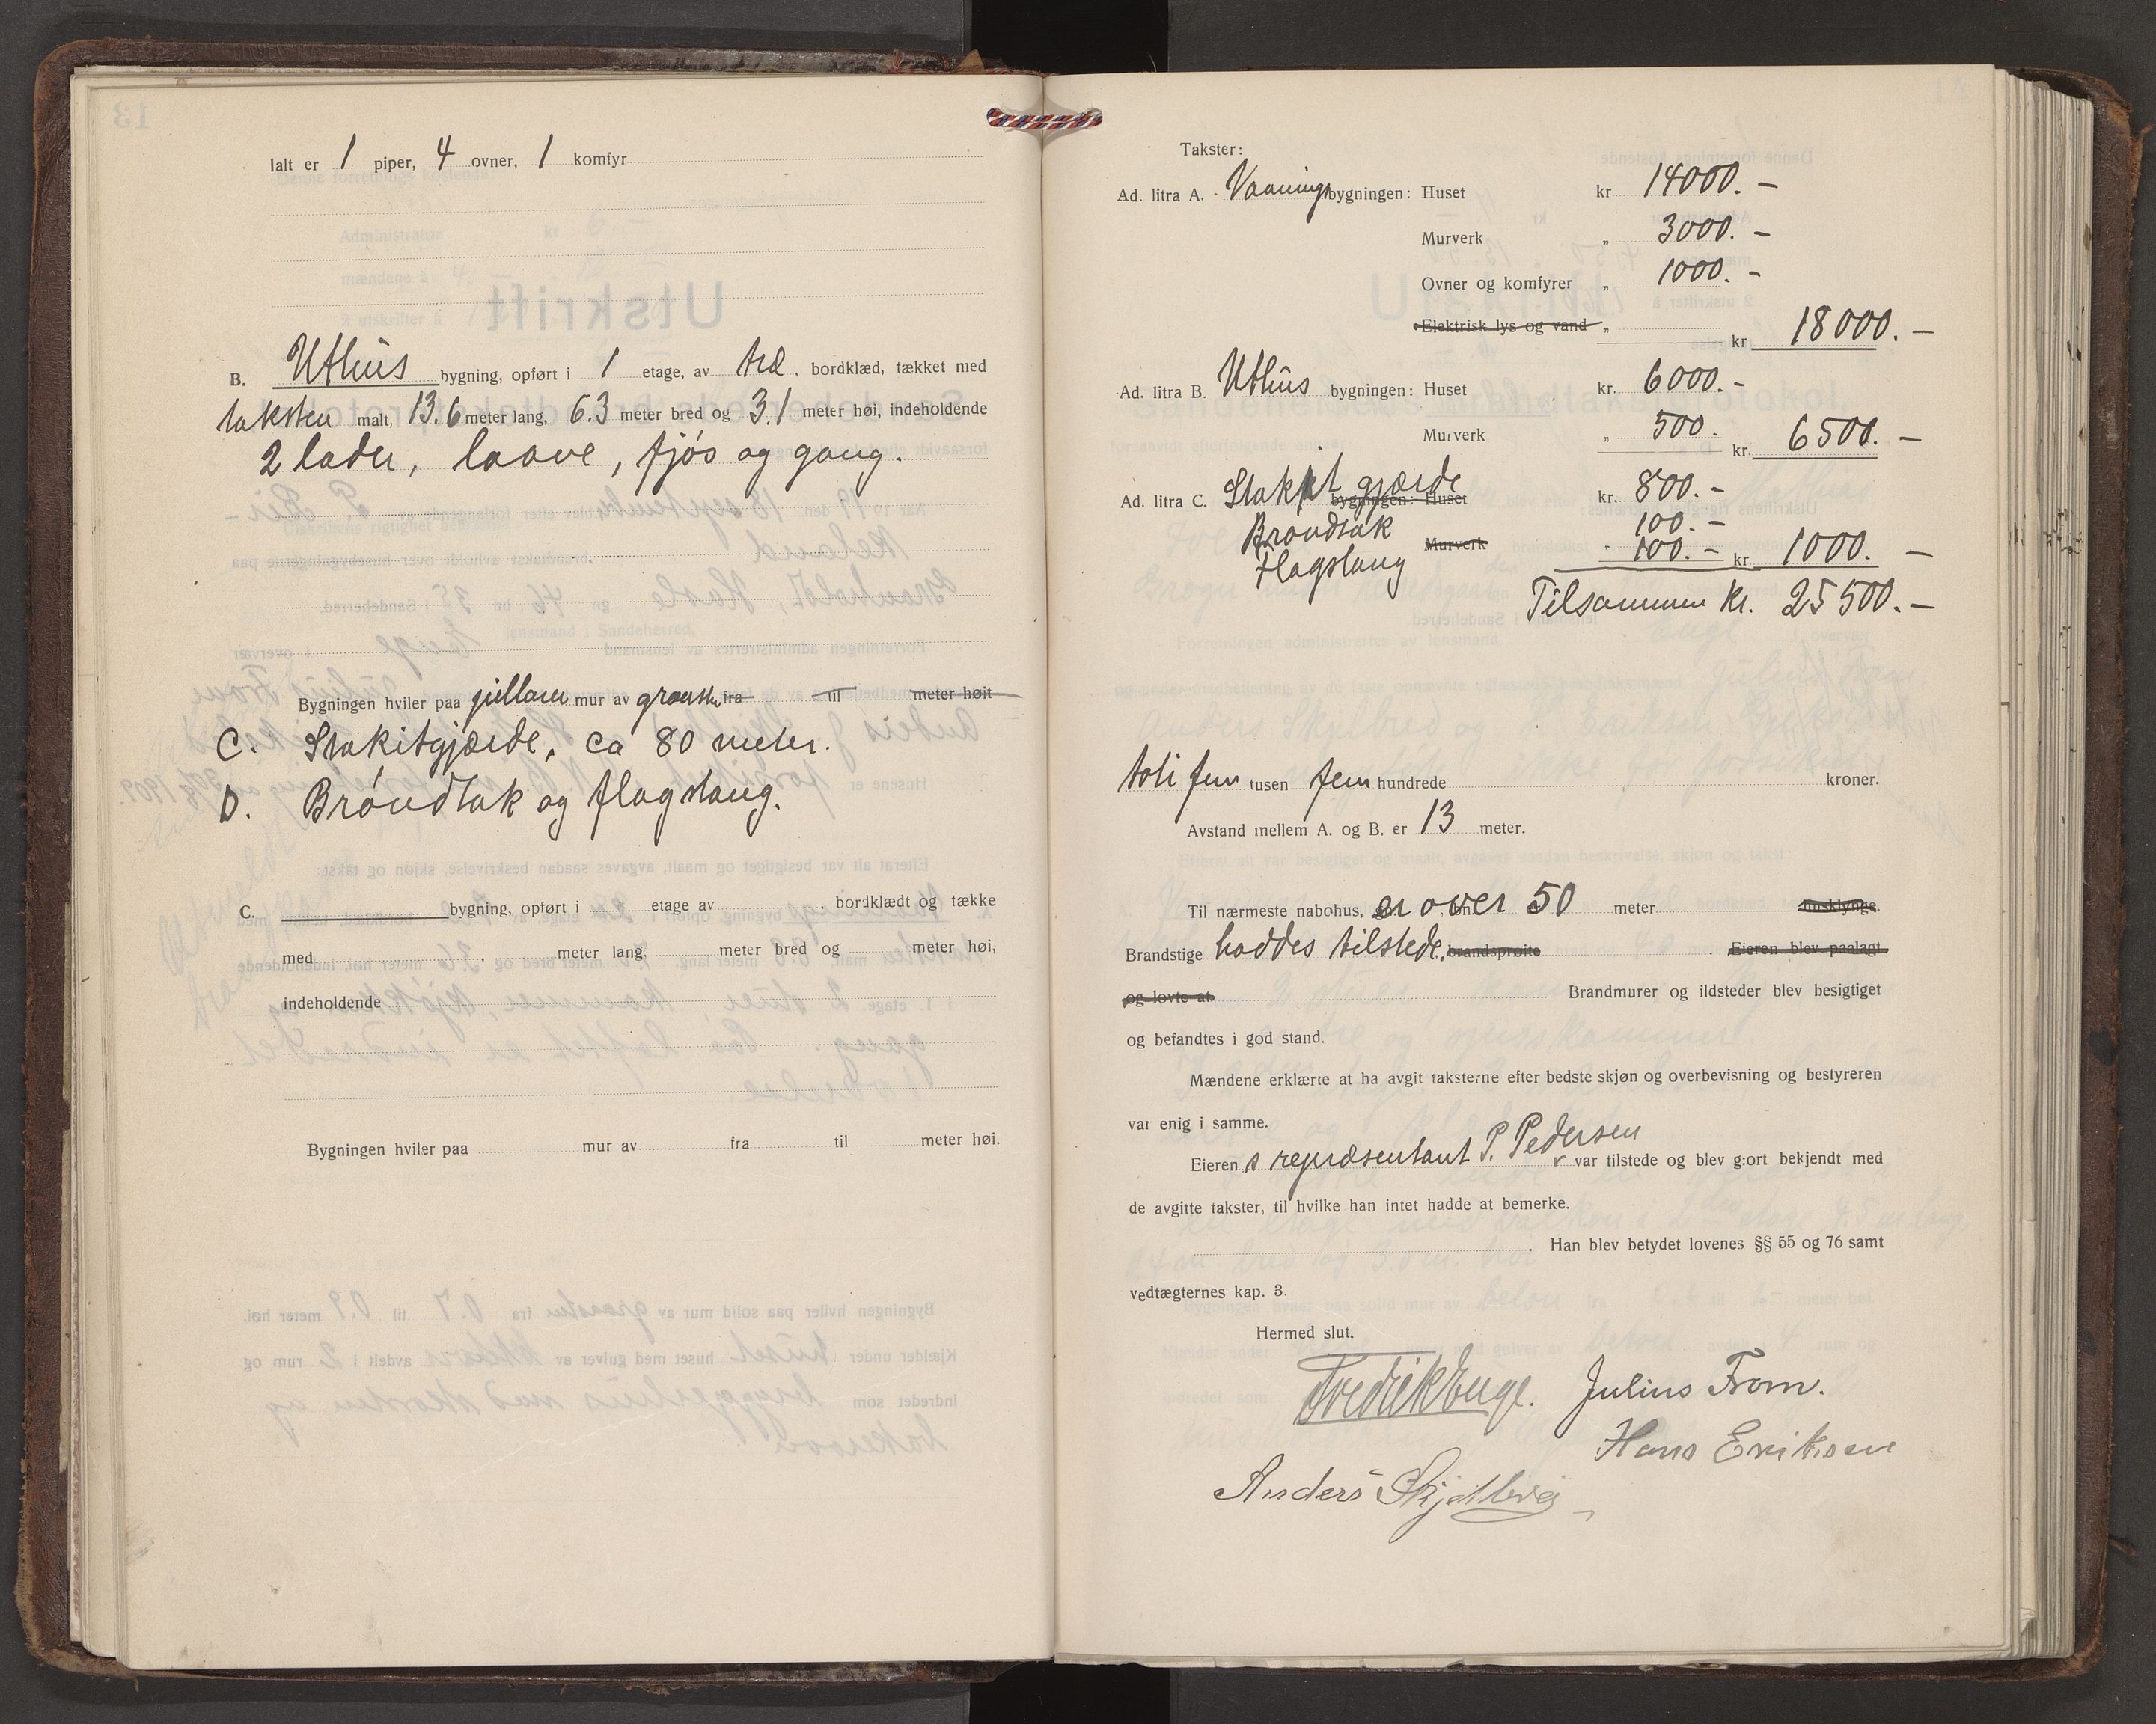 Ialt er 1 piper, 4 ovner, 1 komfyr
B. Uthus bygning, opført i 1 etage, av træ. bordklæd, tækket med
taksten malt, 13.6 meter lang, 6.3 meter bred og 3.1 meter høi, indeholdende
2 lader, laave, fjøs og gang.
Bygningen hviler paa pillarer mur av graasten fra til meter høit
C. Stakitgjærde, ca 80 meter.
D. Brøndtak og flagstang.
C. bygning, opført i etage av , bordklædt og tække
med , meter lang, meter bred og meter høi,
indeholdende
Bygningen hviler paa mur av fra til meter høi.
Takster:
Ad. litra A. Vaanings bygningen: Huset kr. 14000.-
Murverk " 3000.-
Ovner og komfyrer " 1000.-
Elektrisk lys og vand " kr. 18000.-
Ad. litra B. Uthus bygningen: Huset kr. 6000.-
Murverk " 500. kr. 6500.-
Ad. litra C. Stakit gjærde bygningen: Huset kr. 800.-
Brøndtak 100.-
Flagstang Murverk " 100.- kr. 1000.-
Tilsammen kr. 25500.-
fem tusen fem hundrede kroner.
Avstand mellem A. og B. er 13 meter.
Til nærmeste nabohus, er over 50 meter husklynge.
Brandstige haddes tilstede, brandsprøite . Eieren blev paalagt
og lovte at Brandmurer og ildsteder blev besigtiget
og befandtes i god stand.
Mændene erklærte at ha avgit taksterne efter bedste skjøn og overbevisning og bestyreren
var enig i samme.
Eieren s repræsentant P. Pedersen var tilstede og blev gjort bekjendt med
de avgitte takster, til hvilke han intet hadde at bemerke.
. Han blev betydet lovenes §§ 55 og 76 samt
vedtægternes kap. 3.
Hermed slut.
Fredrik Enge. Julius From.
Hans Eriksen
Anders